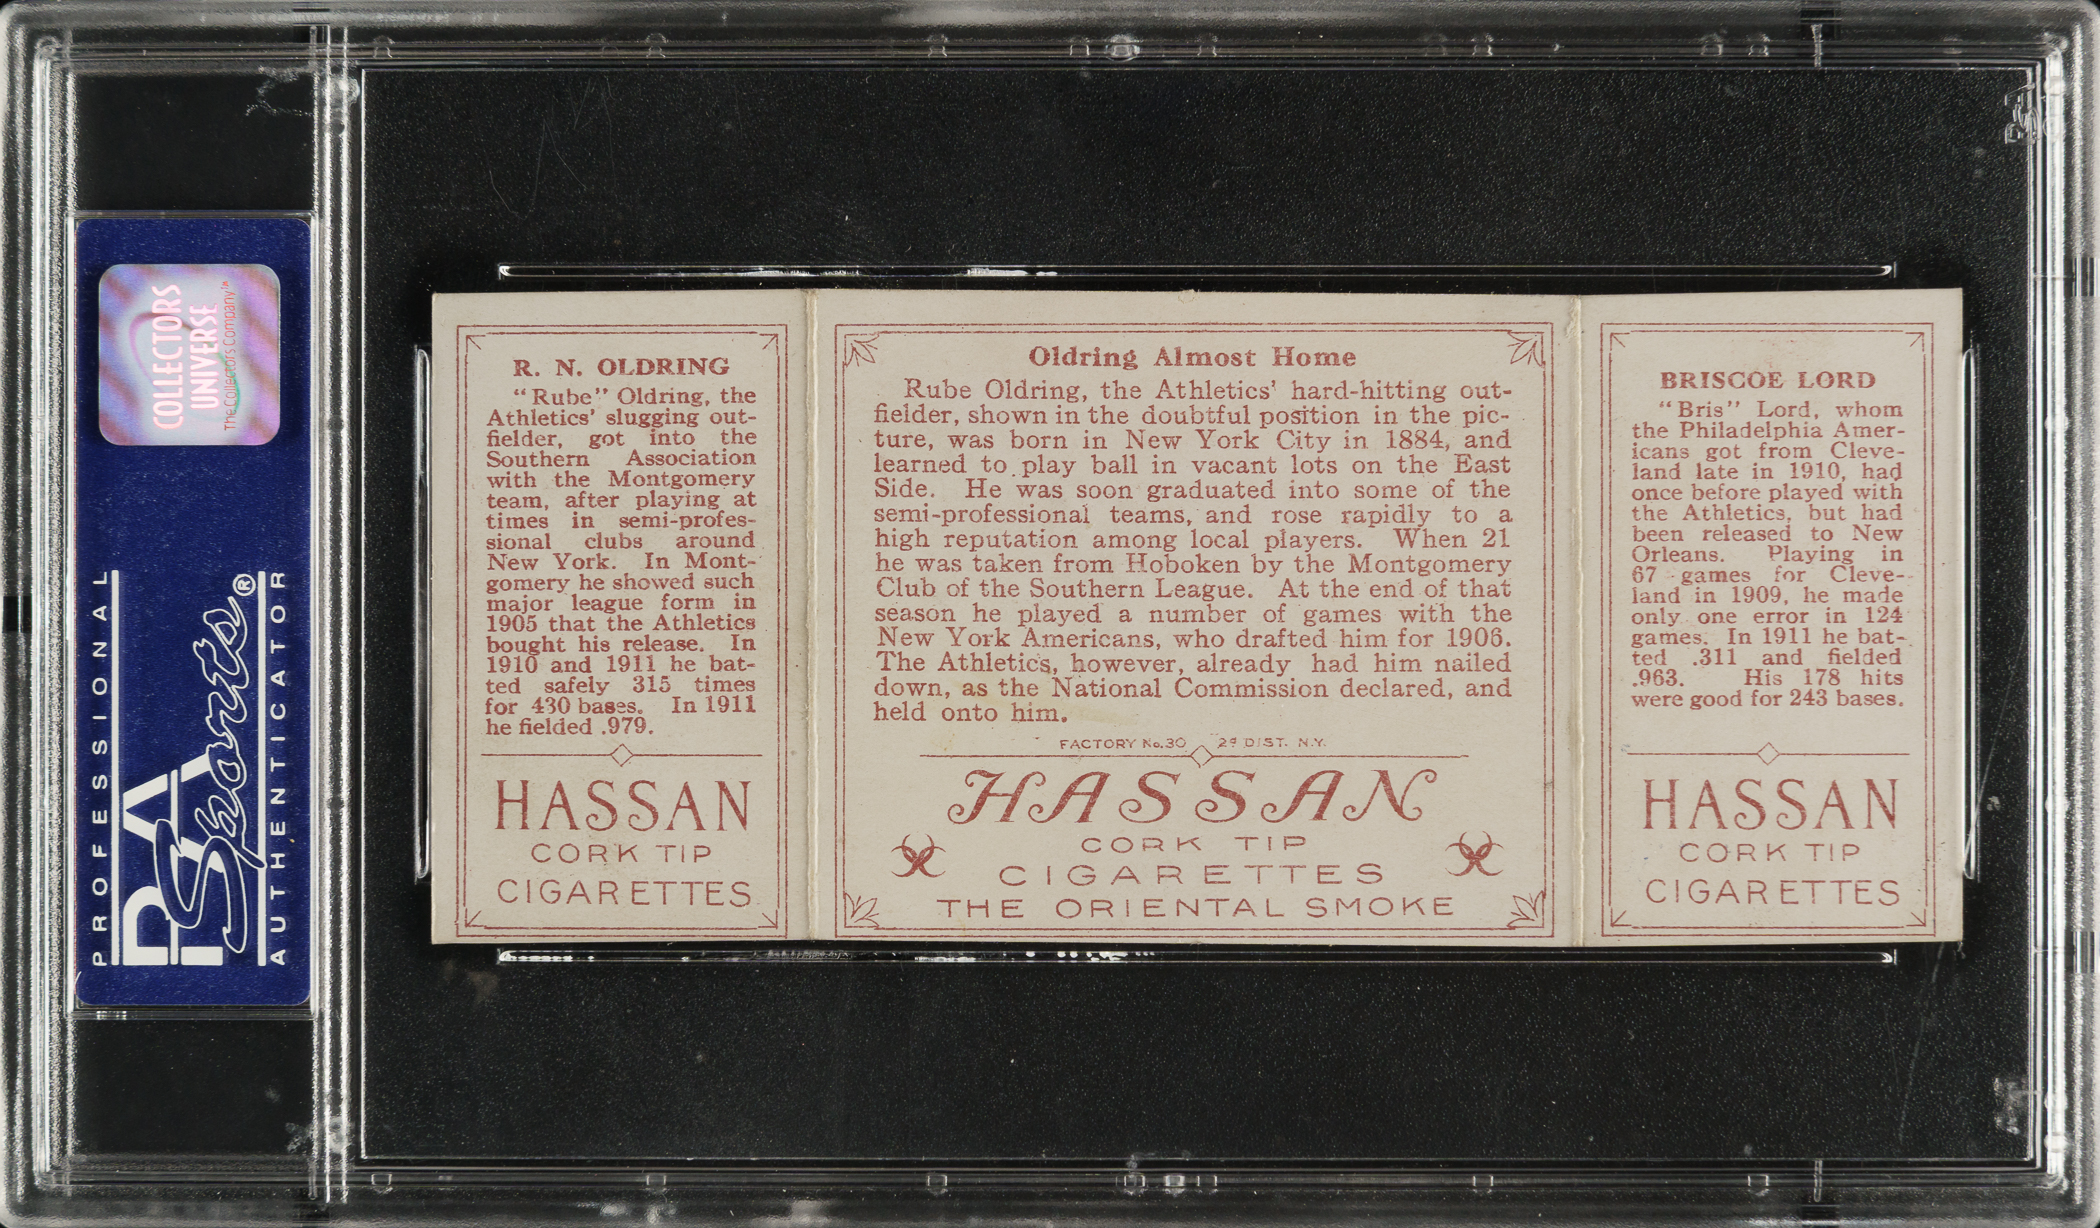 COLLECTORS
UNIVERSE
The Collectors Company™
PROFESSIONAL
PSA
Sports®
AUTHENTICATOR
R. N. OLDRING
"Rube" Oldring, the
Athletics' slugging out-
fielder, got into the
Southern Association
with the Montgomery
team, after playing at
times in semi-profes-
sional clubs around
New York. In Mont-
gomery he showed such
major league form in
1905 that the Athletics
bought his release. In
1910 and 1911 he bat-
ted safely 315 times
for 430 bases. In 1911
he fielded .979.
HASSAN
CORK TIP
CIGARETTES
Oldring Almost Home
Rube Oldring, the Athletics' hard-hitting out-
fielder, shown in the doubtful position in the pic-
ture, was born in New York City in 1884, and
learned to play ball in vacant lots on the East
Side. He was soon graduated into some of the
semi-professional teams, and rose rapidly to a
high reputation among local players. When 21
he was taken from Hoboken by the Montgomery
Club of the Southern League. At the end of that
season he played a number of games with the
New York Americans, who drafted him for 1906.
The Athletics, however, already had him nailed
down, as the National Commission declared, and
held onto him.
FACTORY No. 30 2d DIST. N.Y.
HASSAN
CORK TIP
CIGARETTES
THE ORIENTAL SMOKE
BRISCOE LORD
"Bris" Lord, whom
the Philadelphia Amer-
icans got from Cleve-
land late in 1910, had
once before played with
the Athletics, but had
been released to New
Orleans. Playing in
67 games for Cleve-
land in 1909, he made
only one error in 124
games. In 1911 he bat-
ted .311 and fielded
.963. His 178 hits
were good for 243 bases.
HASSAN
CORK TIP
CIGARETTES